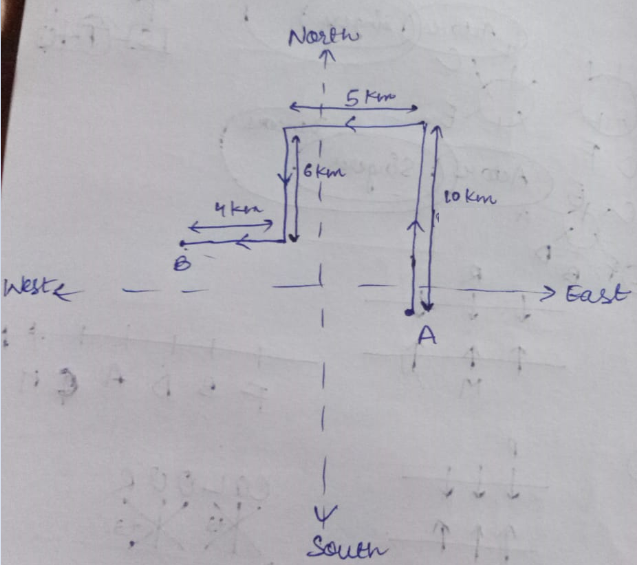 North
5 km
6 km
10 km
4 km
B
West
East
A
South